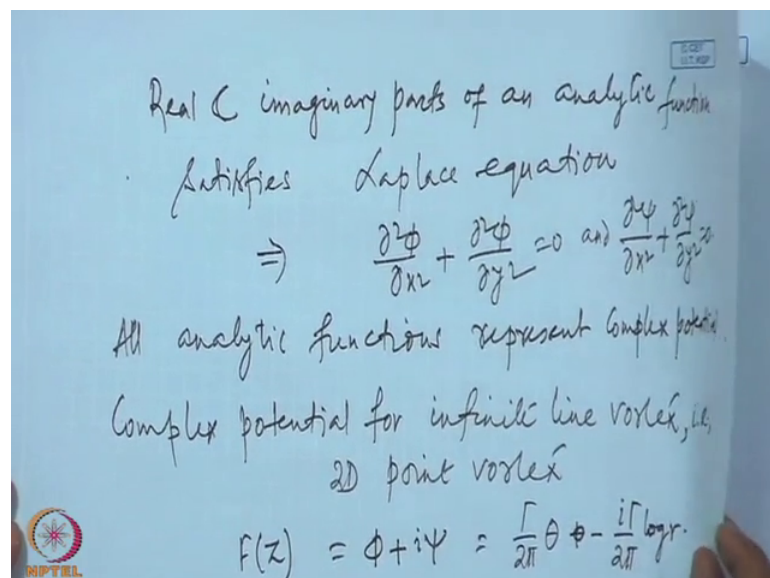 Real & imaginary parts of an analytic function
satisfies Laplace equation
⇒ ∂²φ/∂x² + ∂²φ/∂y² = 0 and ∂²ψ/∂x² + ∂²ψ/∂y² = 0
All analytic functions represent complex potential.
Complex potential for infinite line vortex, i.e.,
2D point vortex
F(z) = φ + iψ = Γ/2π θ - iΓ/2π log r.
NPTEL